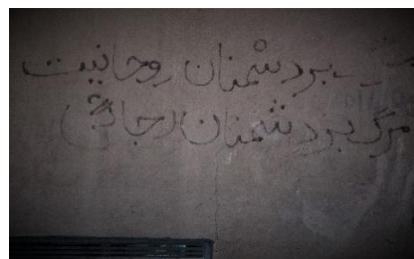 بر دشمنان روحانیت
مرگ بر دشمنان رجائی